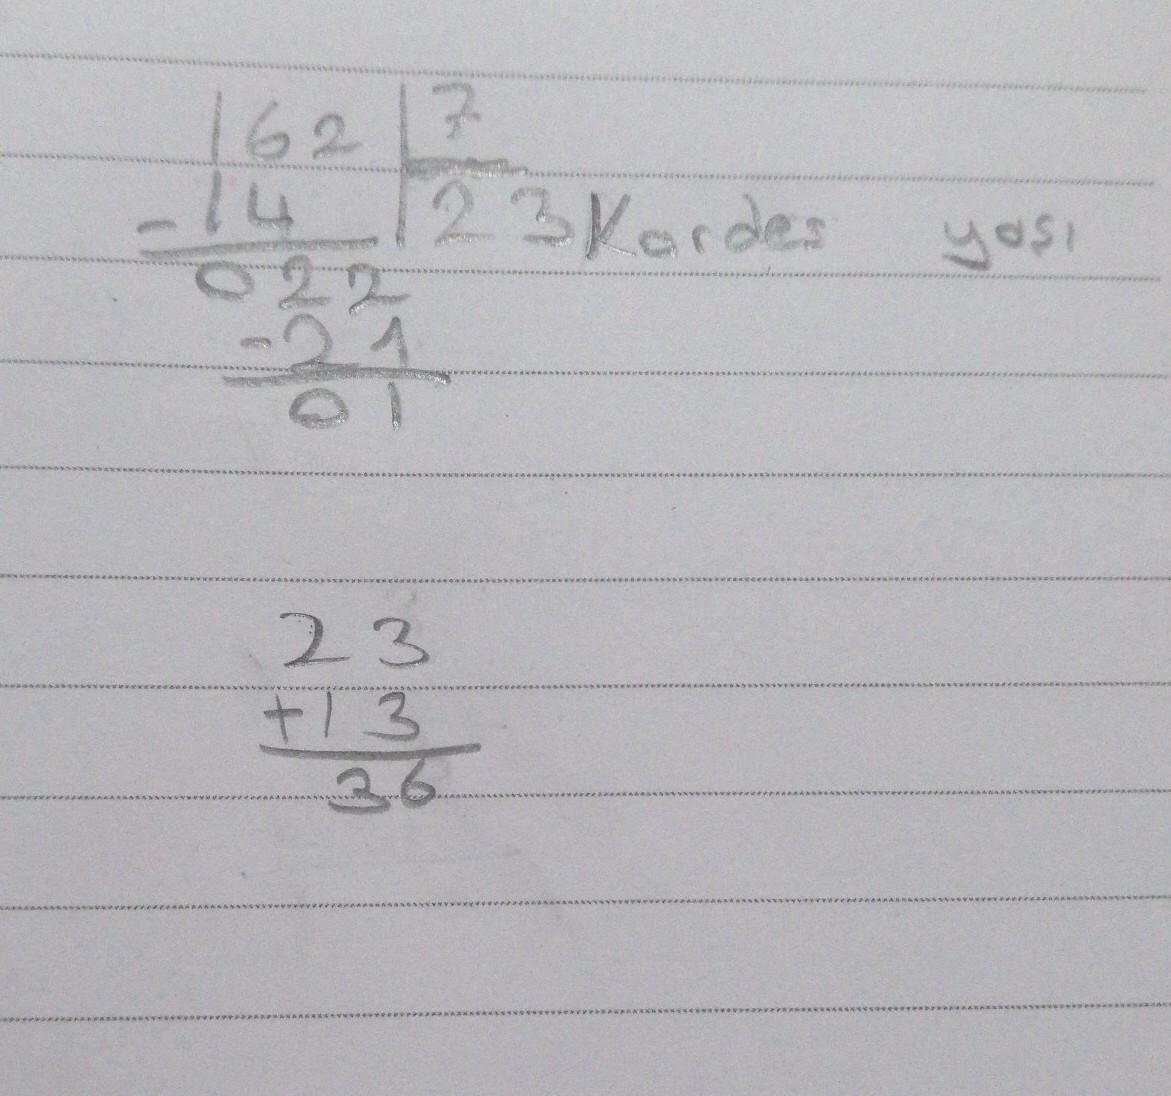 162 7
-14 23 Kardes yası
022
-21
01
23
+13
36